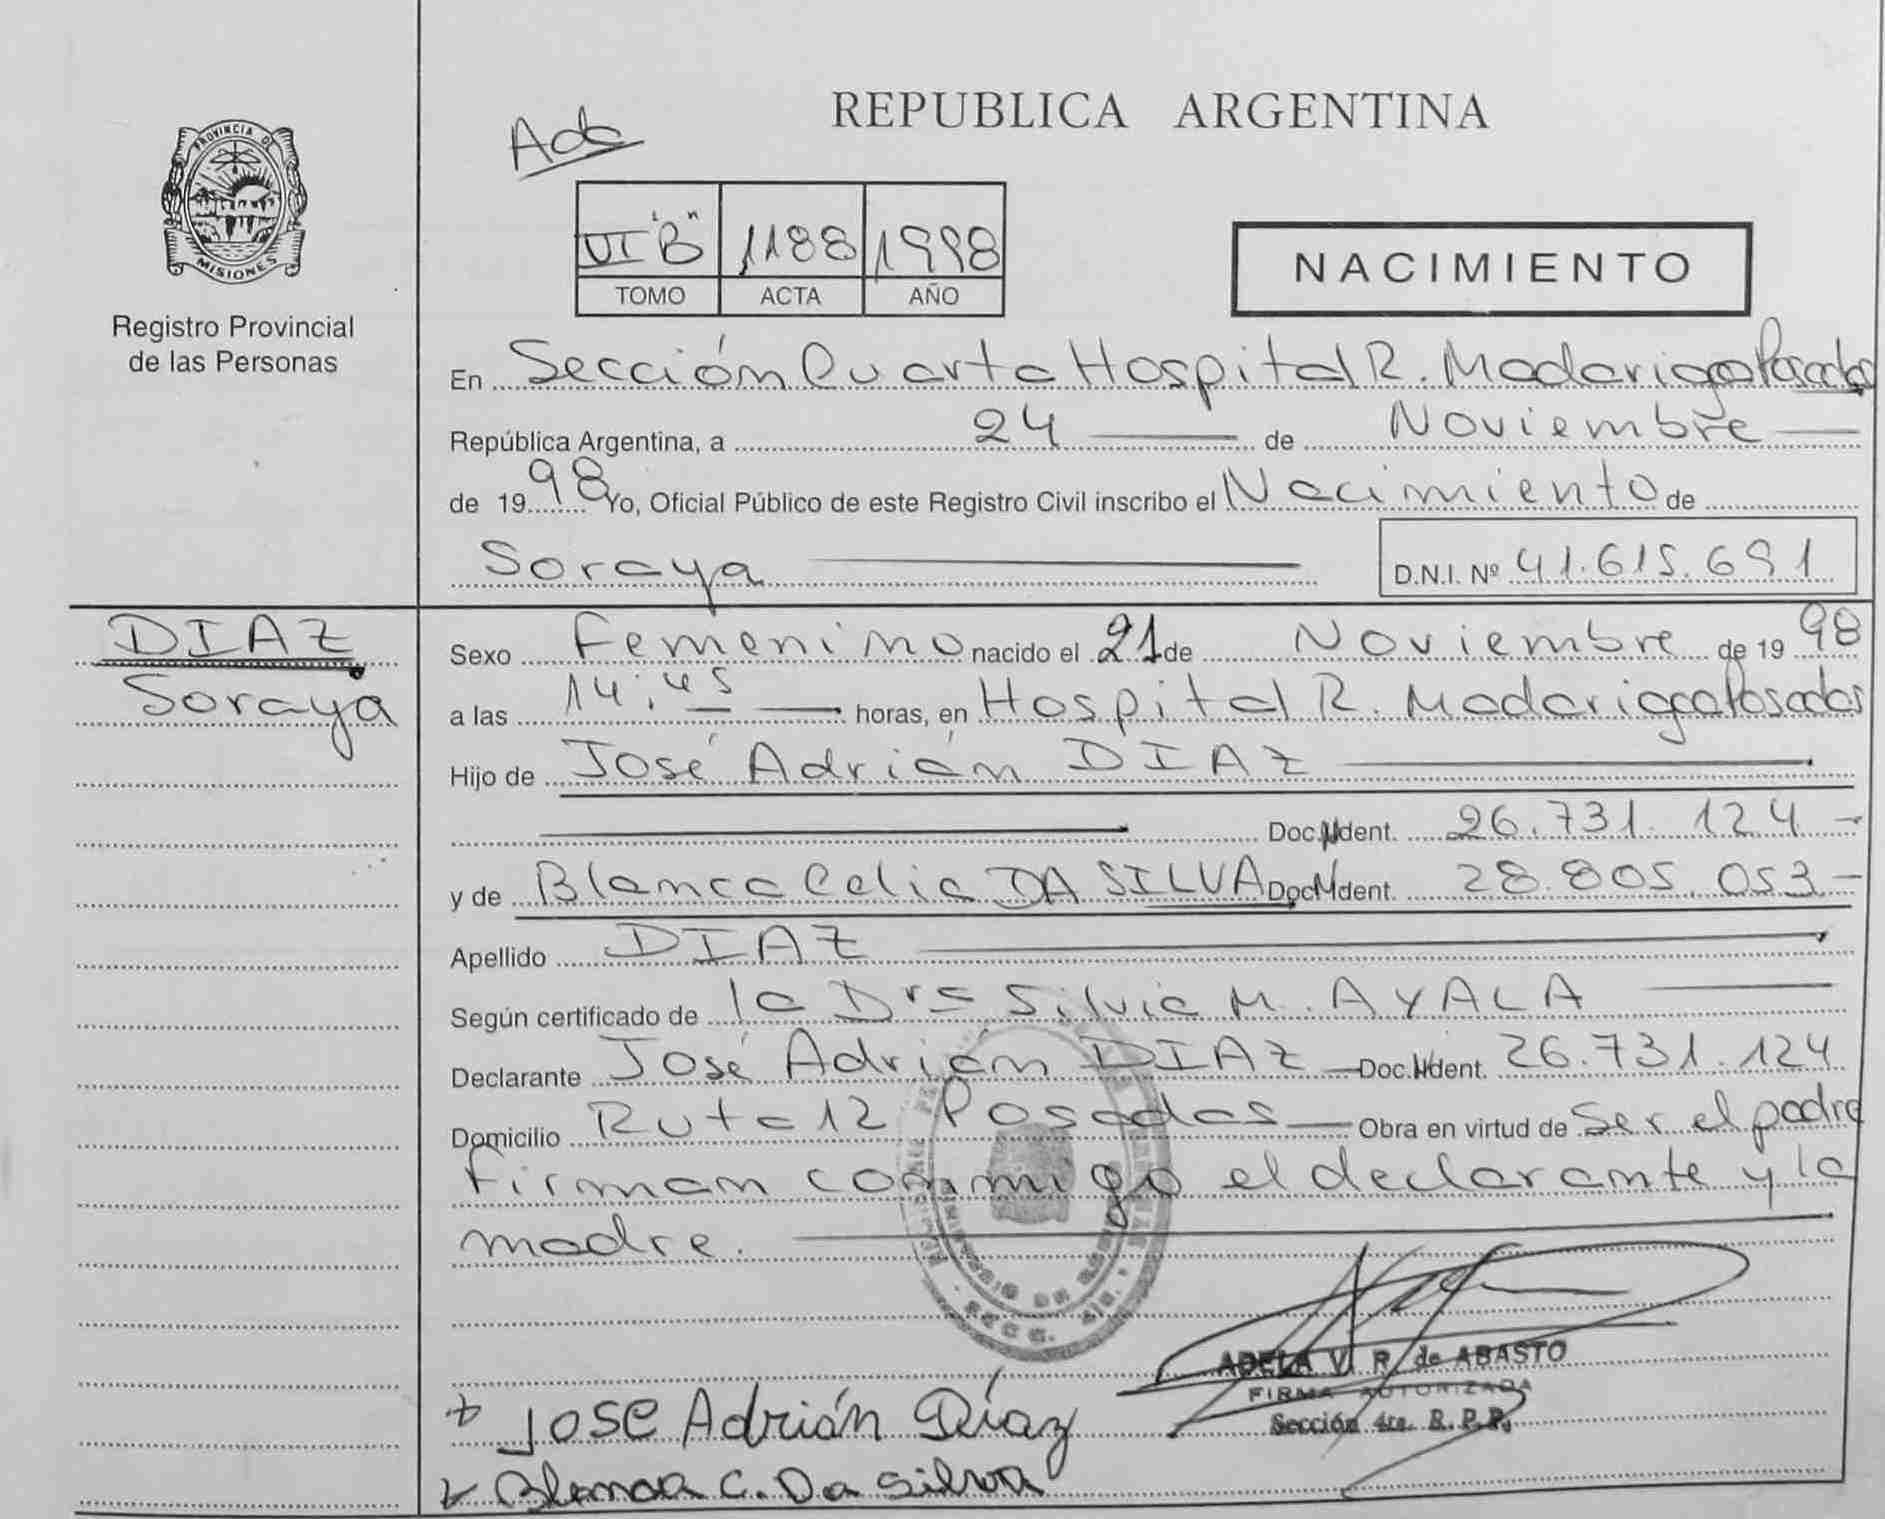 REPUBLICA ARGENTINA
PROVINCIA DE
MISIONES
Registro Provincial
de las Personas
VI "B" 1188 1998
TOMO ACTA AÑO
NACIMIENTO
En Sección Cuarta Hospital R. Madariaga Posadas
República Argentina, a 24 de Noviembre
de 1998 Yo, Oficial Público de este Registro Civil inscribo el Nacimiento de
Soraya D.N.I. Nº 41.615.691
DIAZ
Soraya
Sexo Femenino nacido el 21 de Noviembre de 1998
a las 14:45 horas, en Hospital R. Madariaga Posadas
Hijo de José Adrián DIAZ
Doc. Ident. 26.731.124-
y de Blanca Celia DA SILVA Doc. Ident. 28.805.053-
Apellido DIAZ
Según certificado de la Dra Silvia M. AYALA
Declarante José Adrián DIAZ Doc. Ident. 26.731.124
Domicilio Ruta 12 Posadas Obra en virtud de Ser el padre
firman conmigo el declarante y la
madre.
ADELA V. R. de ABASTO
FIRMA AUTORIZADA
Sección 4ta. R. P. P.
JOSE Adrián Díaz
Blanca C. Da Silva